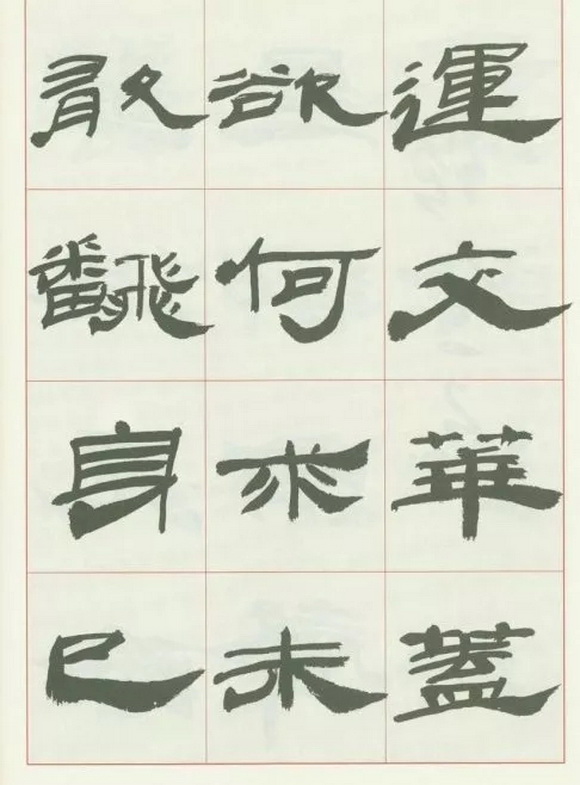 運交華蓋
欲何求未
敢飜身已